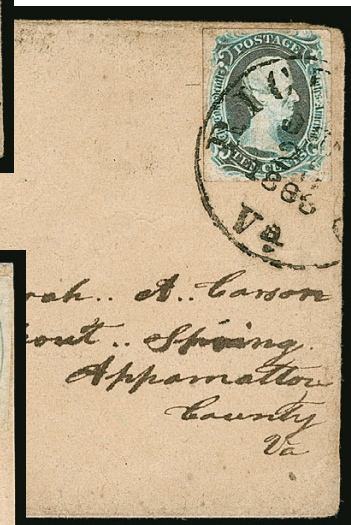 POSTAGE
TEN CENTS
RIC
Va
rah.. A.. Carson
out.. Spring.
Appomattox
County
Va